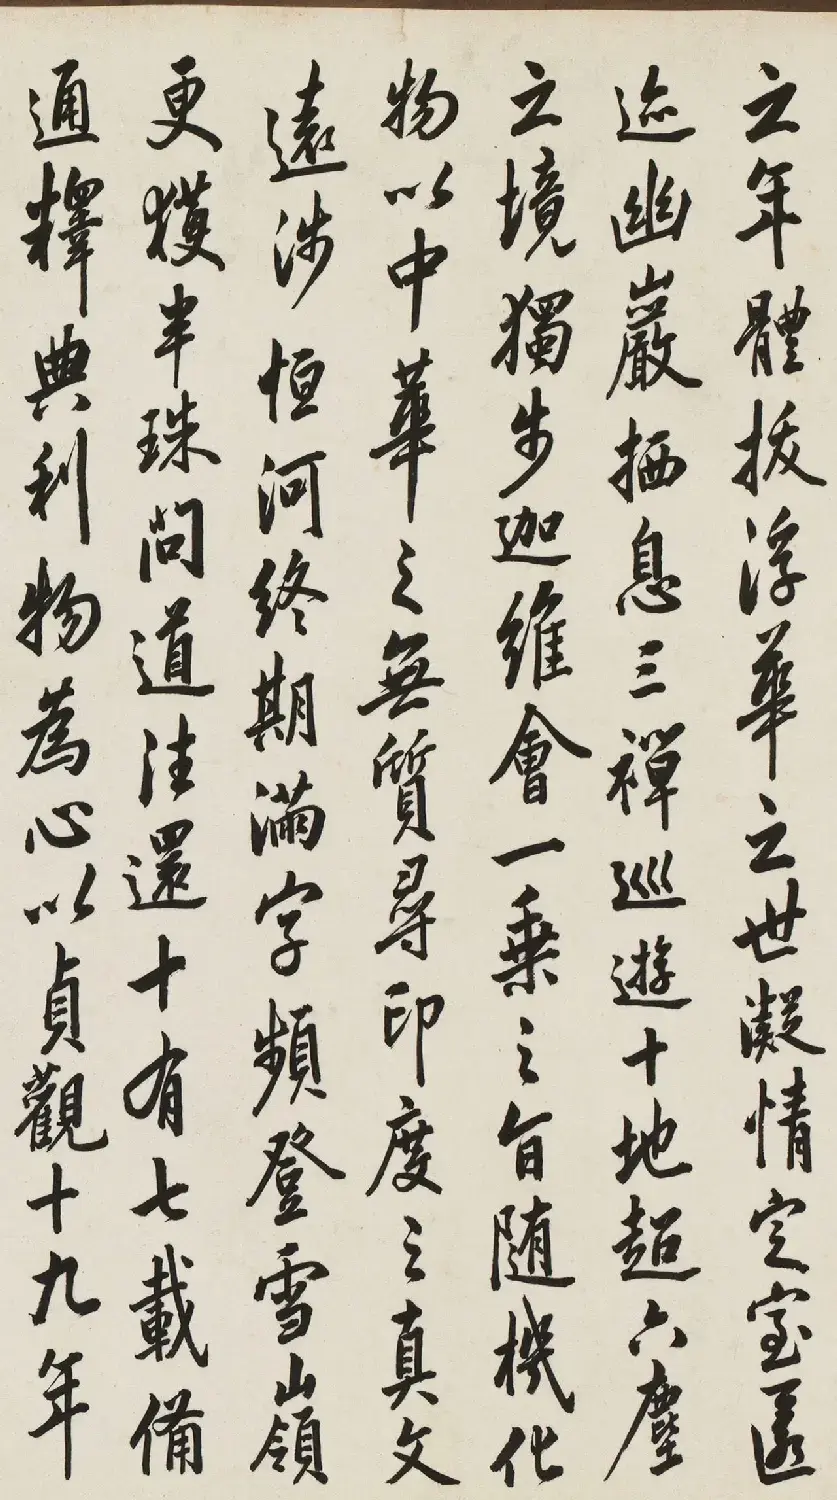 立年體拔浮華之世凝情定室匿
迹幽巖栖息三禪巡遊十地超六塵
之境獨步迦維會一乘之旨随機化
物以中華之無質尋印度之真文
遠涉恒河終期滿字頻登雪嶺
更獲半珠問道往還十有七載備
通釋典利物為心以貞觀十九年